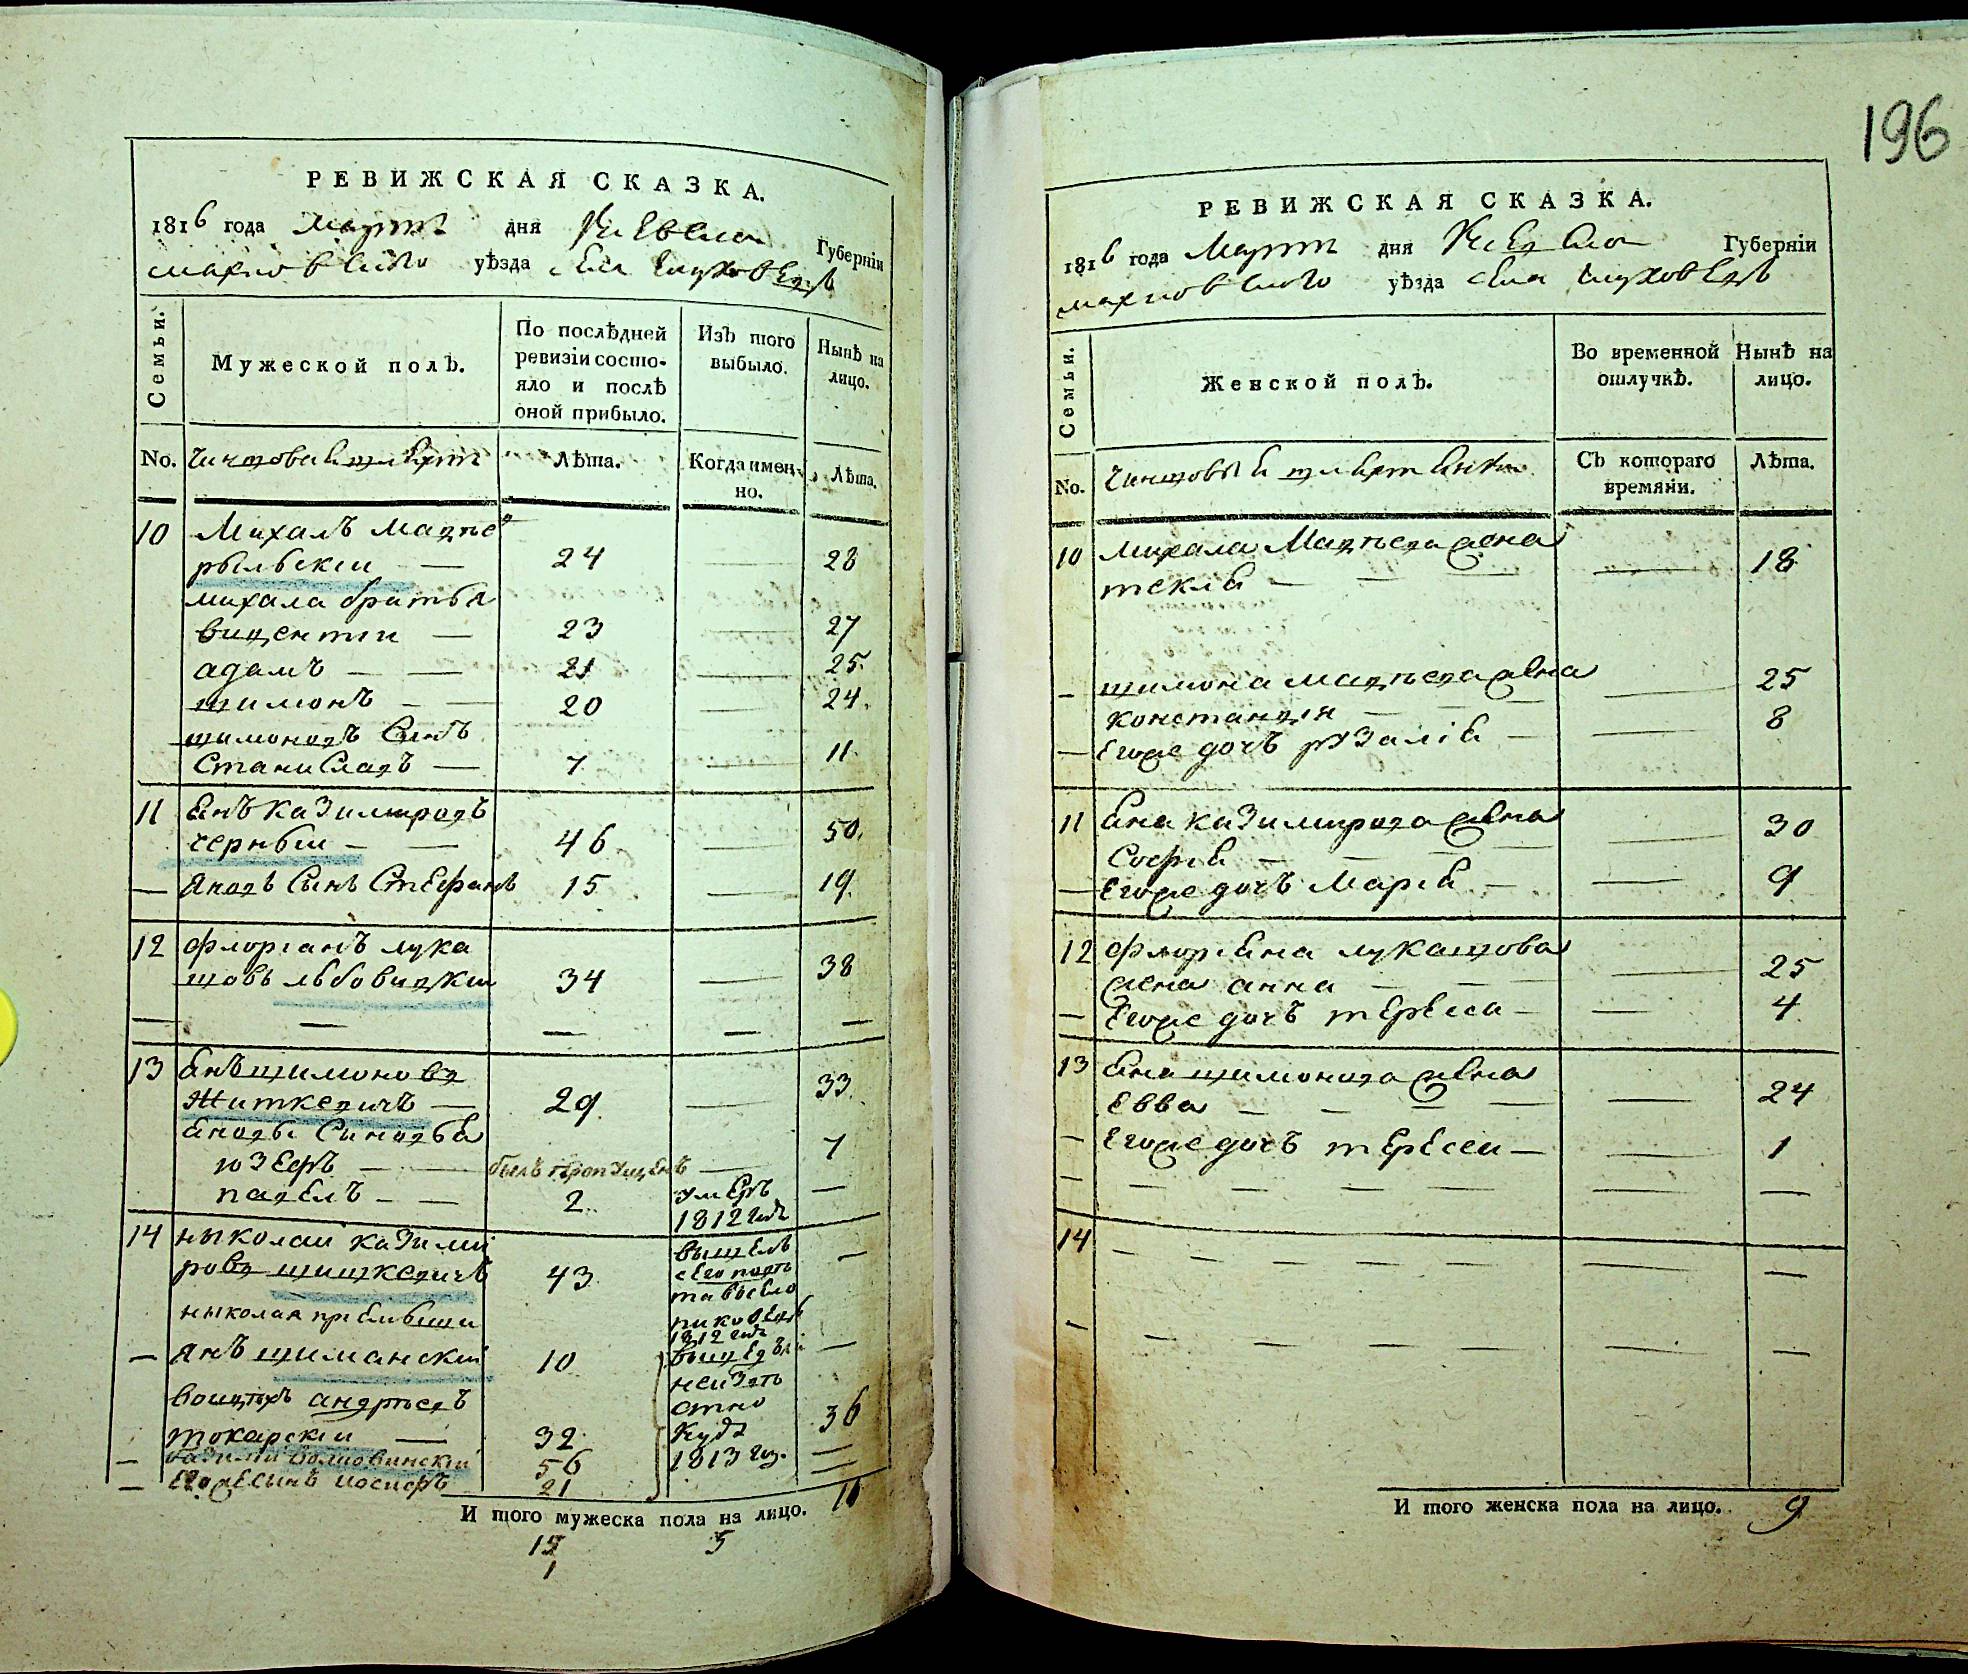 196
РЕВИЖСКАЯ СКАЗКА.
1816 года Марта дня Киевской Губернїи
махновского уѣзда села глуховецъ
Семьи.
Мужеской полъ.
По послѣдней ревизїи состояло и послѣ оной прибыло.
Изъ того выбыло.
Нынѣ на лицо.
No.
Чиншовая шляхта
Лѣта.
Когда именно.
Лѣта.
10 Михалъ Мацѣе
рыльскіи — 24 — 28
михала братья
вицентіи — 23 — 27
адамъ — — 21 — 25.
шимонъ — — 20 — 24.
шимоновъ Сынъ
Станиславъ — 7 — 11
11 янъ казимировъ
черныи — — 46 — 50.
— яновъ Сынъ Стефанъ 15 — 19.
12 флоріанъ лука
шовъ льбовицкіи 34 — 38
— — — — —
13 янъ шимоновъ
житкевичъ — 29. — 33.
яновы Сыновья
юзефъ — — былъ пропущенъ — 7
павелъ — — 2. умеръ —
1812 года
14 николаи казими
ровъ шишкевичъ 43 вышелъ —
своего
николая
1812 года
— янъ шиманскіи 10 —
неизвѣ
стно
андрѣевъ
токарскіи — 32 куда 36
— 56 1813 год. —
— Егоже сынъ иосифъ 21 —
И того мужеска пола на лицо. 11
15 5
1
РЕВИЖСКАЯ СКАЗКА.
1816 года Марта дня Киевской Губернїи
махновского уѣзда села глуховецъ
Семьи.
Женской полъ.
Во временной отлучкѣ.
Нынѣ на лицо.
No.
Чиншовыя шляхтянки
Съ котораго времяни.
Лѣта.
10 михала Мацѣева жена
текля — — — — 18
— шимона мацѣева жена
констанція — — — — 25
— Егоже дочъ розалія — — 8
11 яна казимирова жена
Софія — — — — 30
— Егоже дочъ Марія — — 9
12 флоріяна лукашова
жена анна — — — 25
— Егоже дочъ тереса — — 4
13 яна шимонова жена
Евва — — — — — 24
— Егоже дочъ тереса — — 1
— — — — — — —
14 — — — — — —
— — — — — — —
И того женска пола на лицо. 9